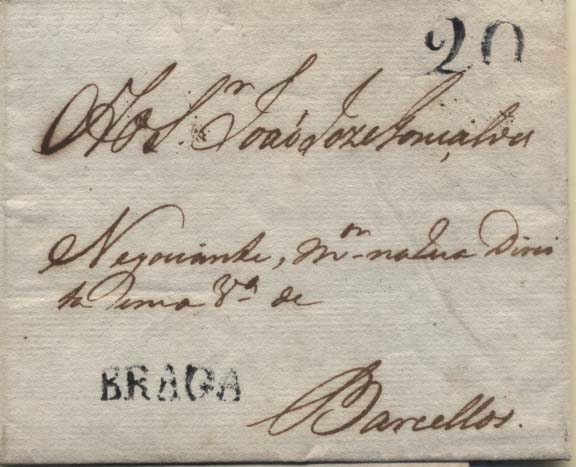 20
Ao Sr. João Joze Gonçalves
Negociante, Mor na Rua Direi
ta em a Va de
BRAGA
Barcellos.